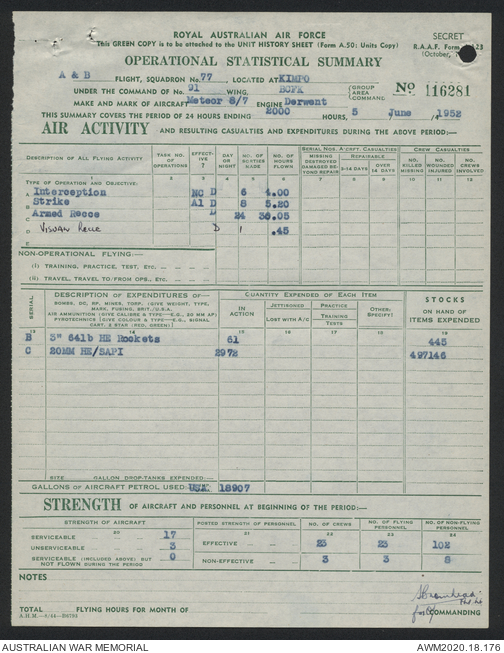 ROYAL AUSTRALIAN AIR FORCE
SECRET
This GREEN COPY is to be attached to the UNIT HISTORY SHEET (Form A.50: Units Copy)
R.A.A.F. Form
(October,
OPERATIONAL STATISTICAL SUMMARY
A & B FLIGHT, SQUADRON No. 77 LOCATED AT KIMPO
UNDER THE COMMAND OF No. 91 WING, BCFK (GROUP AREA COMMAND No 116281
MAKE AND MARK OF AIRCRAFT Meteor 8/7 ENGINE Derwent
THIS SUMMARY COVERS THE PERIOD OF 24 HOURS ENDING 2000 HOURS, 5 June, 1952
AIR ACTIVITY AND RESULTING CASUALTIES AND EXPENDITURES DURING THE ABOVE PERIOD:—
DESCRIPTION OF ALL FLYING ACTIVITY
TASK NO. OF OPERATIONS
EFFECTIVE ?
DAY OR NIGHT
NO. OF SORTIES MADE
NO. OF HOURS FLOWN
SERIAL NOS. A'CRFT. CASUALTIES
MISSING DESTROYED DAMAGED BEYOND REPAIR
REPAIRABLE
OVER 14 DAYS
CREW CASUALTIES
NO. KILLED MISSING
NO. WOUNDED INJURED
NO. CREWS INVOLVED
1 2 3 4 5 6 7 8 9 10 11 12
TYPE OF OPERATION AND OBJECTIVE:
A Interception NC D 6 4.00
B Strike A1 D 8 5.20
C Armed Recce D 24 38.05
D VISUAL RECCE D 1 .45
E
NON-OPERATIONAL FLYING:—
(i) TRAINING, PRACTICE, TEST, ETC.
(ii) TRAVEL, TRAVEL TO/FROM OPS., ETC.
SERIAL
DESCRIPTION OF EXPENDITURES OF—
BOMBS, DC, RP, MINES, TORP. (GIVE WEIGHT, TYPE, MARK, FUSING, BRIT./U.S.A.
AIR AMMUNITION (GIVE CALIBRE & TYPE—E.G., 20 MM AP)
PYROTECHNICS (GIVE COLOUR & TYPE—E.G., SIGNAL CART. 2 STAR (RED, GREEN)
QUANTITY EXPENDED OF EACH ITEM
IN ACTION
JETTISONED
LOST WITH A/C
PRACTICE
TRAINING
TESTS
OTHER: SPECIFY!
STOCKS
ON HAND OF ITEMS EXPENDED
13 14 15 16 17 18 19
B 3" 64lb HE Rockets 61 445
C 20MM HE/SAPI 2972 497146
SIZE GALLON DROP-TANKS EXPENDED:—
GALLONS OF AIRCRAFT PETROL USED USA. 18907
STRENGTH OF AIRCRAFT AND PERSONNEL AT BEGINNING OF THE PERIOD:—
STRENGTH OF AIRCRAFT
POSTED STRENGTH OF PERSONNEL
NO. OF CREWS
NO. OF FLYING PERSONNEL
NO. OF NON-FLYING PERSONNEL
20 21 22 23 24
SERVICEABLE 17
UNSERVICEABLE 3
SERVICEABLE (INCLUDED ABOVE) BUT NOT FLOWN DURING THE PERIOD 0
EFFECTIVE 23 23 102
NON-EFFECTIVE 3 3 8
NOTES
for COMMANDING
TOTAL FLYING HOURS FOR MONTH OF
AUSTRALIAN WAR MEMORIAL
AWM2020.18.176